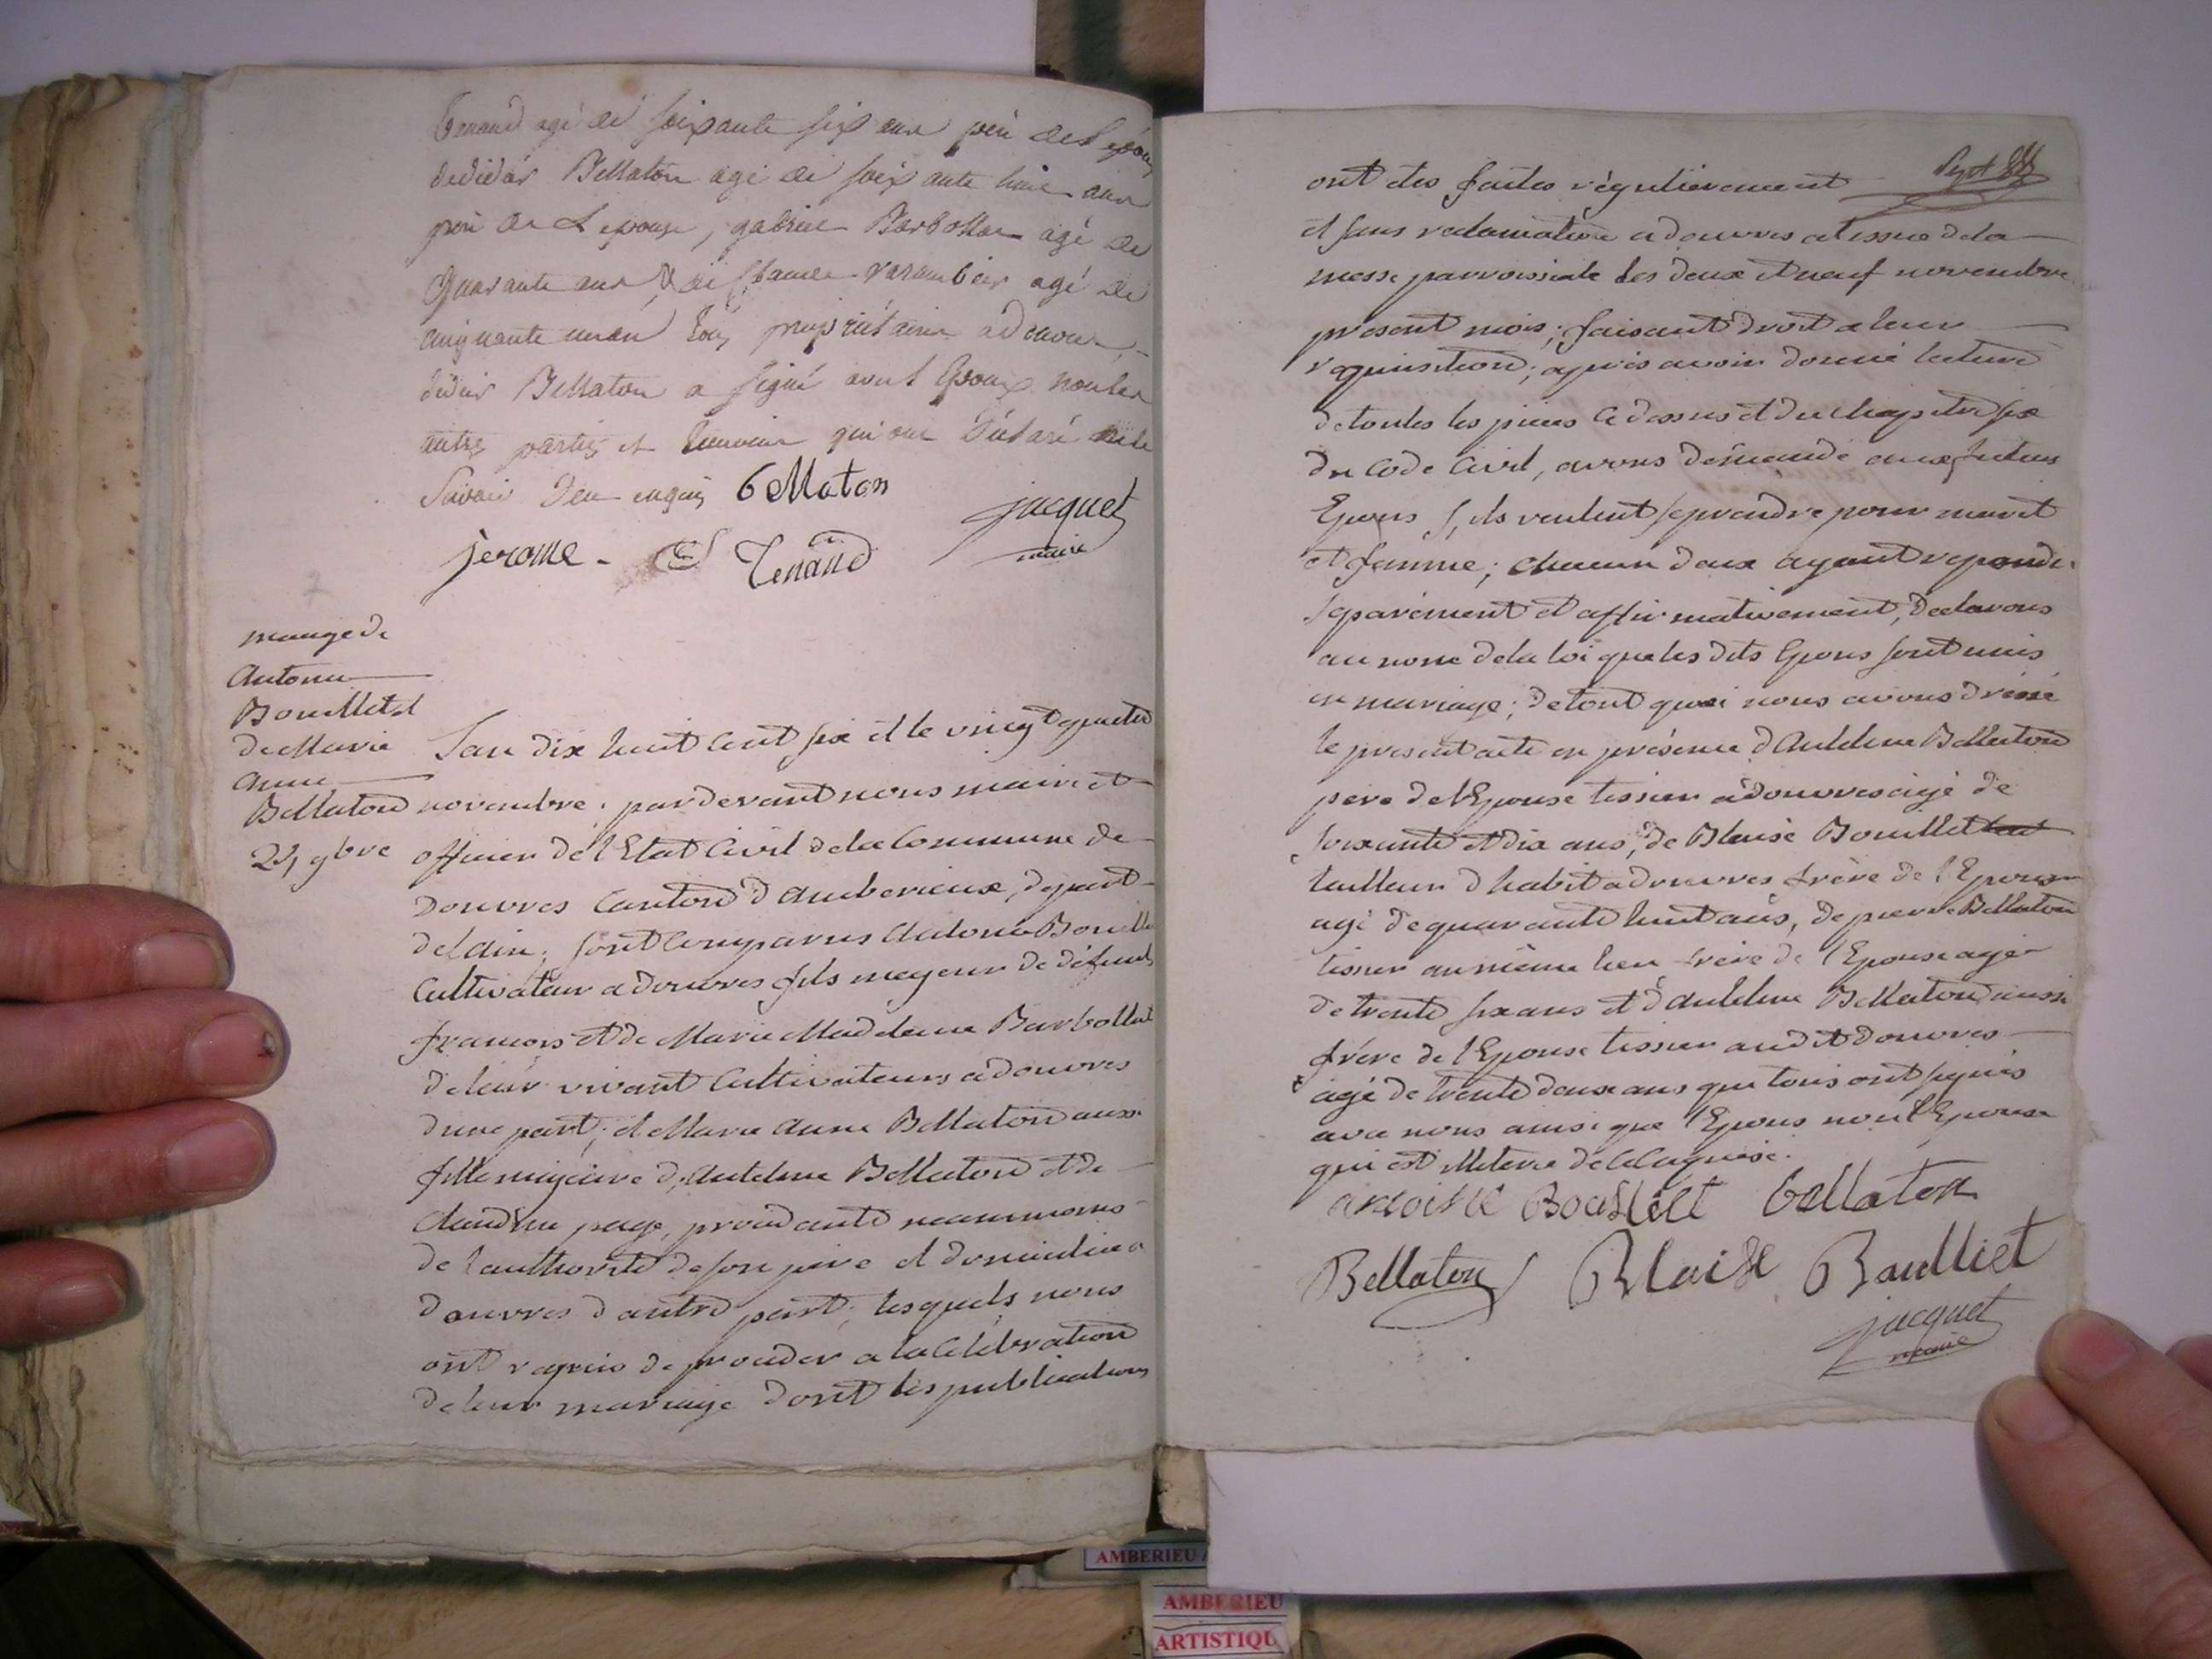 Tenand agé de soixante six ans père de l'epoux
de didier Bellaton agé de soixante huit ans
père de L epouse, gabriel Barbollat agé de
Quarante ans & de varambier agé de
cinquante un an tous propriétaires a douvres,
didier Bellaton a signé avec l Epoux non les
autres parties et temoins qui ont déclaré ne le
Savoir de ce enquis bellaton
jacquet
maire
jerome - Tenand
mariage de
Antoine
Bouillet et
de Marie
Anne
Bellaton
24 9bre
Lan dix huit cent six et le vingt quatre
novembre, par devant nous maire et
officier de l Etat Civil de la Commune de
Douvres Canton d'Amberieux, depart
de lain, sont Comparus Antoine Bouillet
Cultivateur a douvres fils majeur de défunts
françois et de Marie Madelaine Barbollat
de leur vivant Cultivateurs a douvres
dune part, et Marie Anne Bellaton aussi
fille majeure d'Antelme Bellaton et de
Claudine page, procedante neanmoins
de l authorité de son père et domiciliée a
douvres d autre part, lesquels nous
ont requis de proceder a la Célébration
de leur mariage dont les publications
ont etes faites régulièrement
et sans reclamation a douvres a l issue de la
messe parroissiale les deux et neuf novembre
present mois; faisant droit a leur
requisition; après avoir donné lecture
de toutes les pieces Ci dessus et du chapitre six
du Code Civil, avons demandé aux futurs
Epoux s, ils veulent se prendre pour mari
et femme; chacun deux ayant repondu
séparément et affirmativement, declarons
au nom de la loi que les dits Epoux sont unis
en mariage; de tout quoi nous avons dressé
le present acte en présence d'Antelme Bellaton
père de l Epouse tissier a douvres agé de
soixante et dix ans, de Blaise Bouillet
tailleur d habit a douvres frère de l Epoux
agé de quarante huit ans, de pierre Bellaton
tissier au même lieu frère de l Epouse agé
de trente six ans et d'antelme Bellaton aussi
frère de l Epouse tissier au dit douvres
agé de trente deux ans qui tous ont signés
avec nous ainsi que l Epoux non l Epouse
qui est illeterée de Ce enquise.
antoine Bouillet bellaton
Bellaton Blaise Boulliet
jacquet
maire
AMBERIEU
AMBERIEU
ARTISTIQU